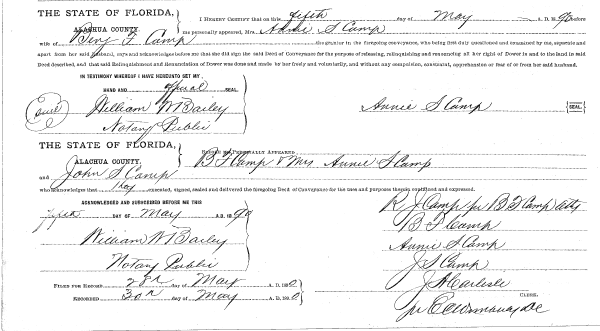 THE STATE OF FLORIDA, I HEREBY CERTIFY that on this fifth day of May A. D. 1890 before
ALACHUA COUNTY. me personally appeared, Mrs. Annie S Camp
wife of Benj F Camp the grantor in the foregoing conveyance, who being first duly questioned and examined by me, separate and
apart from her said husband, says and acknowledges before me that she did sign the said Deed of Conveyance for the purpose of releasing, relinquishing and renouncing all her right of Dower in and to the land in said
Deed described, and that said Relinquishment and Renunciation of Dower was done and made by her freely and voluntarily, and without any compulsion, constraint, apprehension or fear of or from her said husband.
IN TESTIMONY WHEREOF I HAVE HEREUNTO SET MY
HAND AND official SEAL
William W Bailey Annie S Camp [SEAL]
Notary Public
THE STATE OF FLORIDA, BEFORE ME PERSONALLY APPEARED
ALACHUA COUNTY, B F Camp & Mrs Annie S Camp
and John S Camp
who acknowledges that they executed, signed, sealed and delivered the foregoing Deed of Conveyance for the uses and purposes therein contained and expressed.
ACKNOWLEDGED AND SUBSCRIBED BEFORE ME THIS R J Camp per B F Camp atty
fifth DAY OF May A. D. 1890 B F Camp
William W Bailey Annie S Camp
J S Camp
Notary Public J A Carlisle
FILED FOR RECORD 28th day of May A. D. 1890 CLERK.
RECORDED 30th day of May A. D. 1890 pr